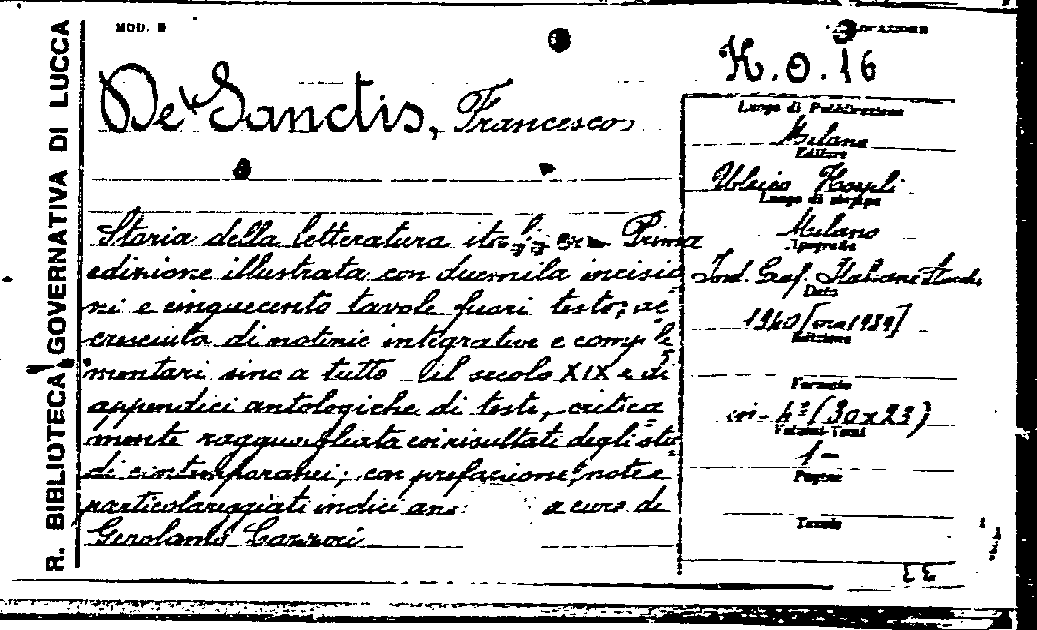 R. BIBLIOTECA GOVERNATIVA DI LUCCA
MOD. B
K.O.16
De Sanctis, Francesco
Storia della letteratura Prima
edizione illustrata con duemila incisio
ni e cinquecento tavole fuori testo; ac
cresciuta di notizie integrative e comple
mentari sino a tutto il secolo XIX e di
appendici antologiche di testi, critica
mente ragguagliata coi risultati degli stu
di contemporanei; con prefazione, note e
particolareggiati indici a cura di
Gerolamo Lazzeri
Luogo di Pubblicazione
Milano
Editore
Ulrico Hoepli
Luogo di stampa
Milano
Tipografia
Ind. Graf. Italiane Stucchi
Data
1940 [ma 1939]
Edizione
Formato
in-4º (30x23)
Volumi Tomi
1 —
Pagine
Tavole